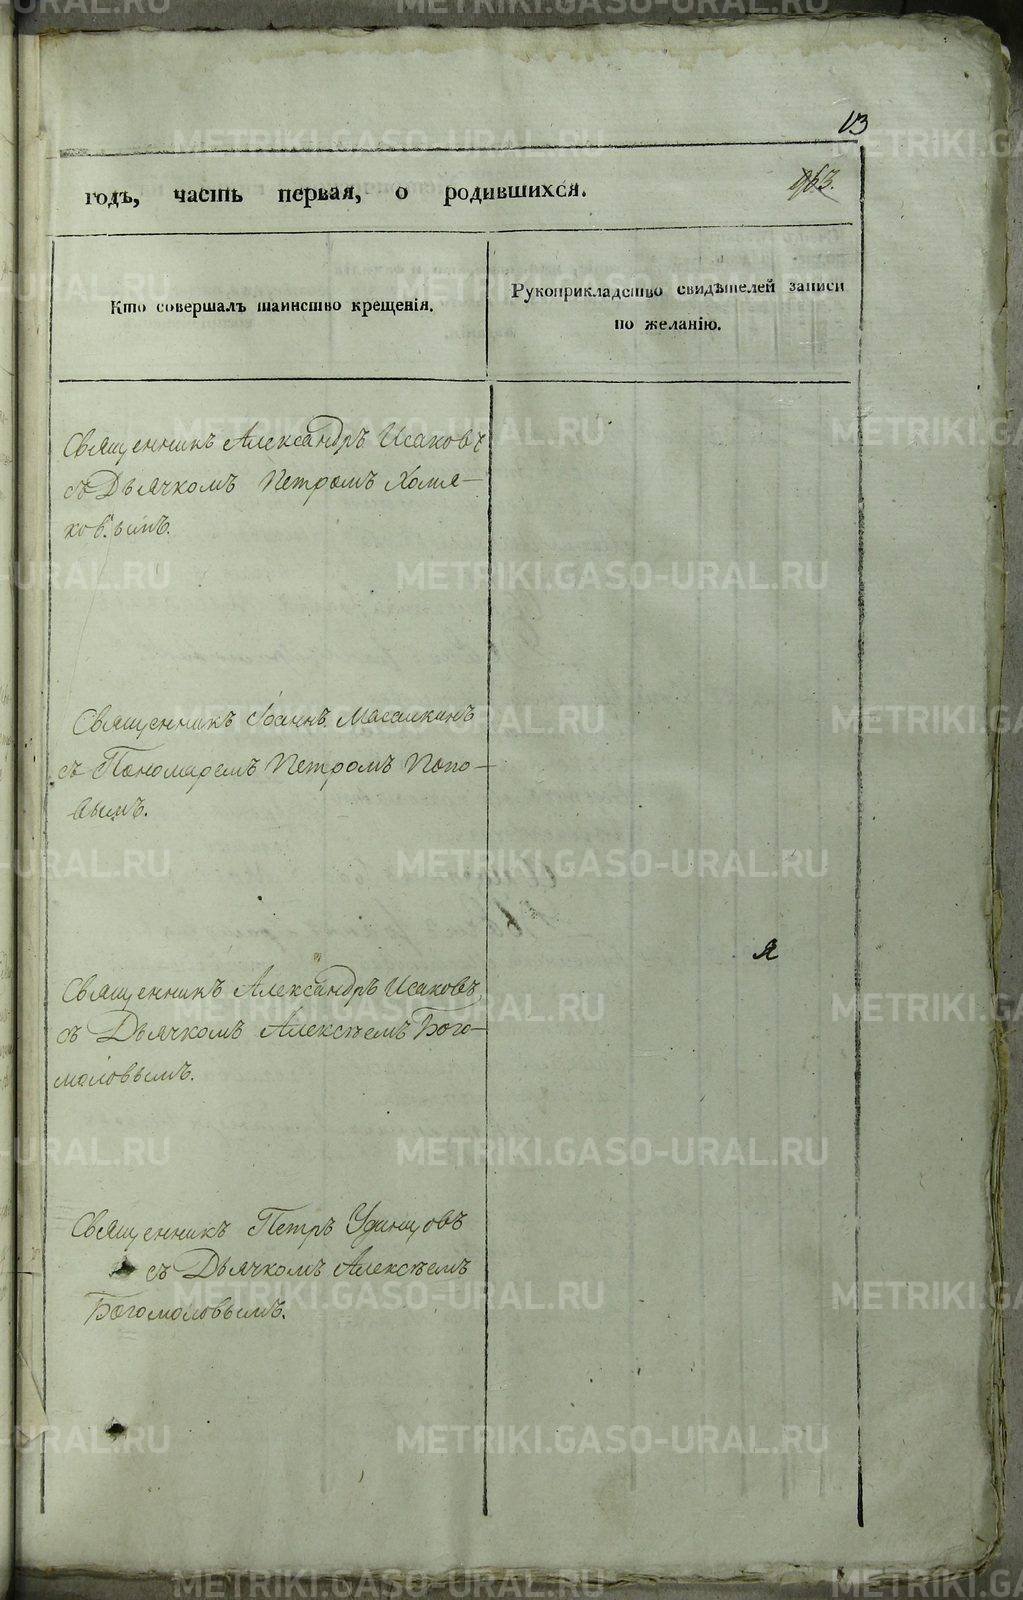 13
годъ, часть первая, о родившихся.
963.
Кто совершалъ таинство крещенія.
Рукоприкладство свидѣтелей записи
по желанію.
Священникъ Александръ Исаковъ
съ Дьячкомъ Петромъ Хомя-
ковымъ.
Священникъ Іоаннъ Масалкинъ
съ Пономаремъ Петромъ Попо-
вымъ.
Я
Священникъ Александръ Исаковъ,
съ Дьячкомъ Алексѣемъ Бого-
моловымъ.
Священникъ Петръ Удинцовъ
съ Дьячкомъ Алексѣемъ
Богомоловымъ.
METRIKI.GASO-URAL.RU